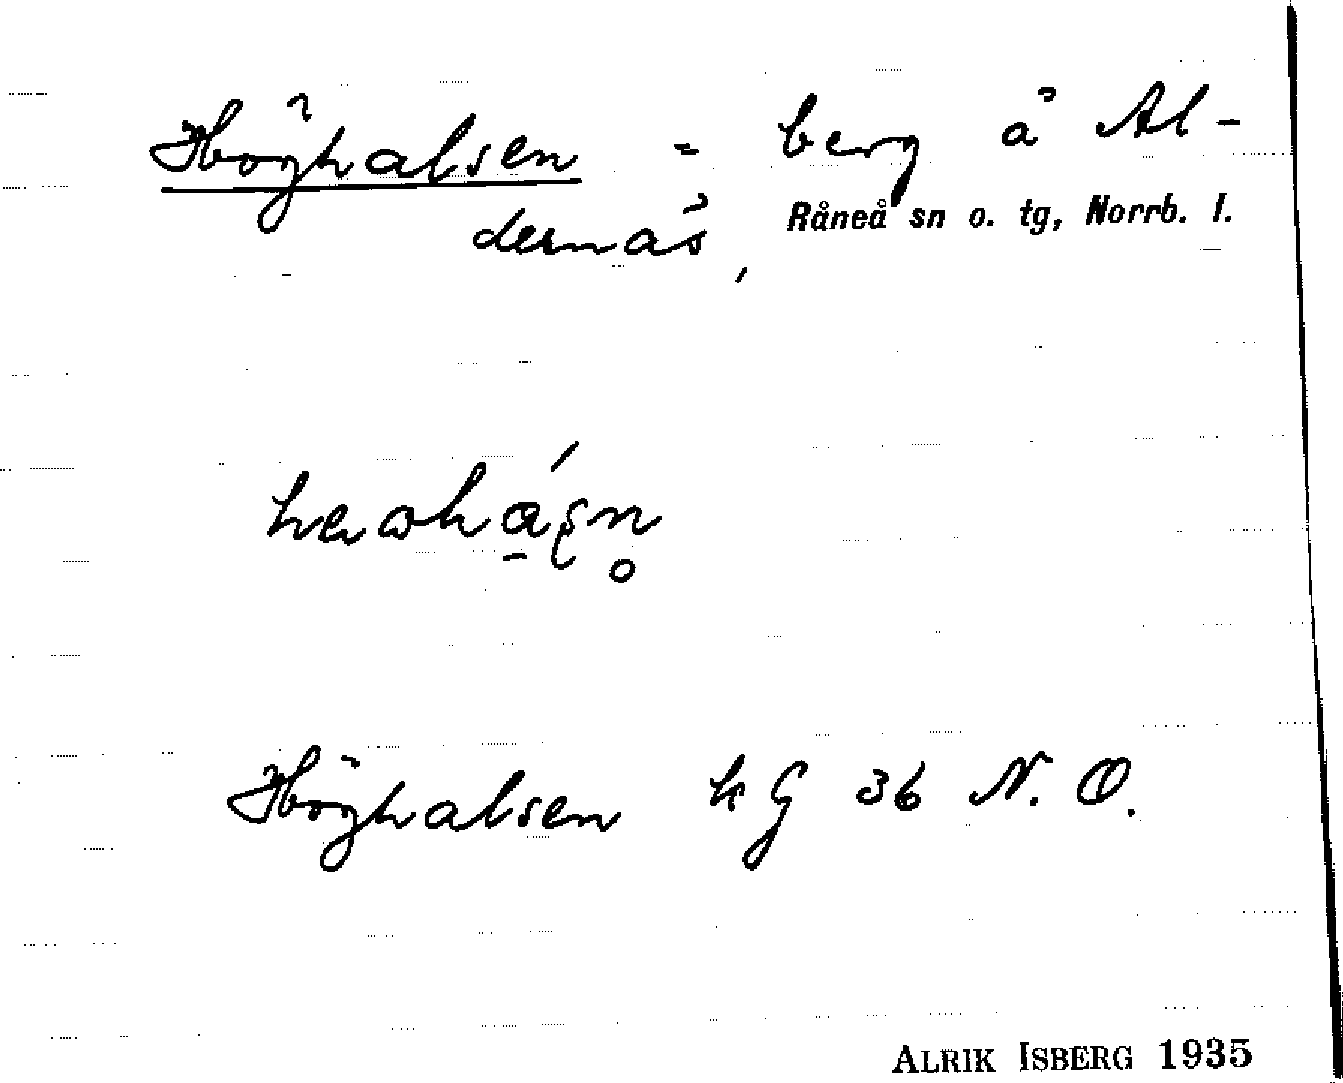 Höghalsen - berg å Al-
dernäs, Råneå sn o. tg, Norrb. l.
Höghalsen kG 36 N. O.
ALRIK ISBERG 1935